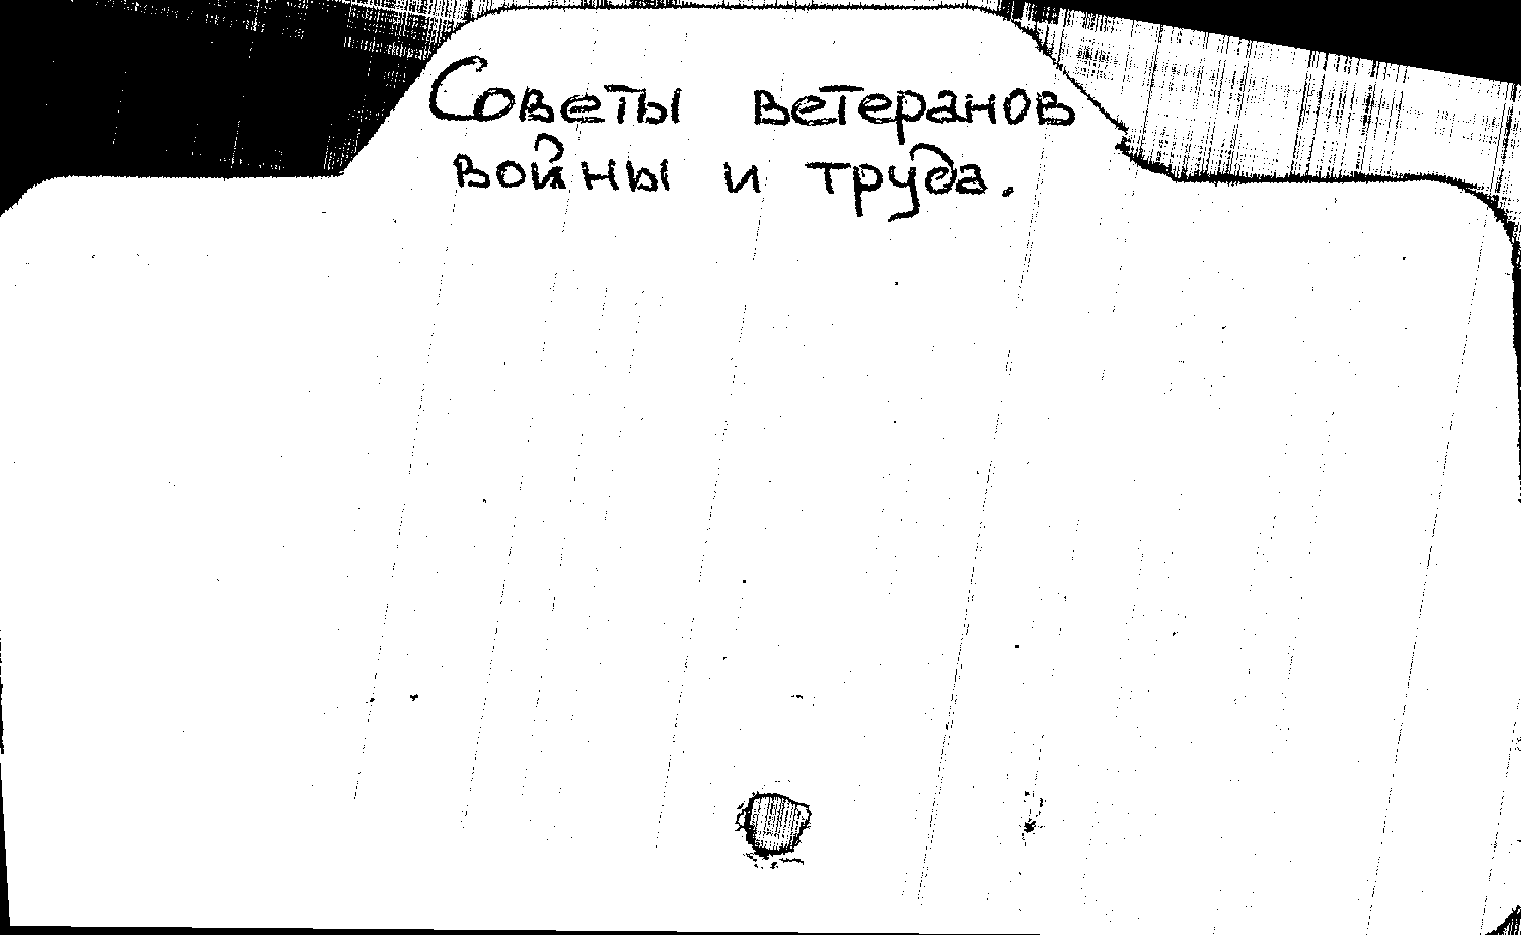 Советы ветеранов
войны и труда.